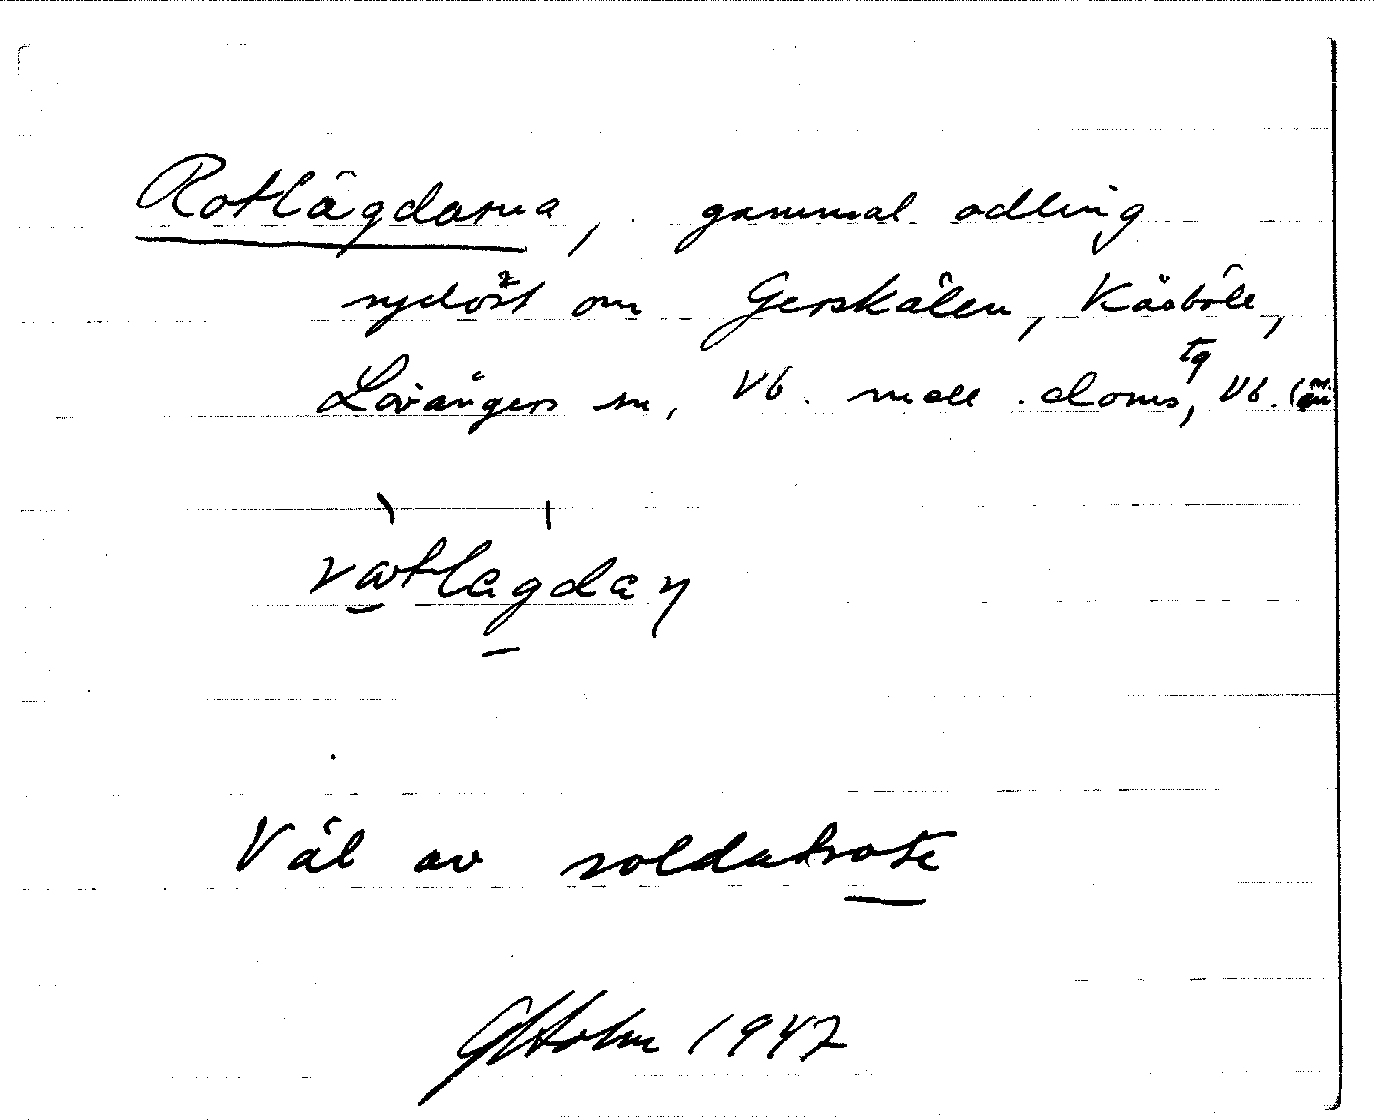 Rotlägdorna, gammal odling
sydöst om Gerskälen, Käsböle,
Lövångers sn, Vb. mell. doms
tg, Vb. l
Väl av soldatrote
GHolm 1947